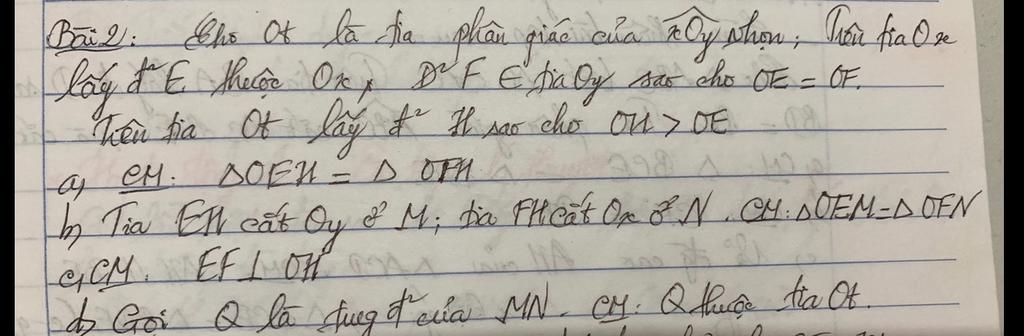 Bài 2: Cho Ot là tia phân giác của xOy nhọn; Trên tia Ox
lấy đ² E thuộc Ox, Đ² F ∈ tia Oy sao cho OE = OF.
Trên tia Ot lấy đ² H sao cho OH > OE
a) CM: △OEH = △ OFH
b) Tia EH cắt Oy ở M; tia FH cắt Ox ở N. CM: △OEM = △OFN
c, CM. EF ⊥ OH
d) Gọi Q là tung đ² của MN. CM: Q thuộc tia Ot.